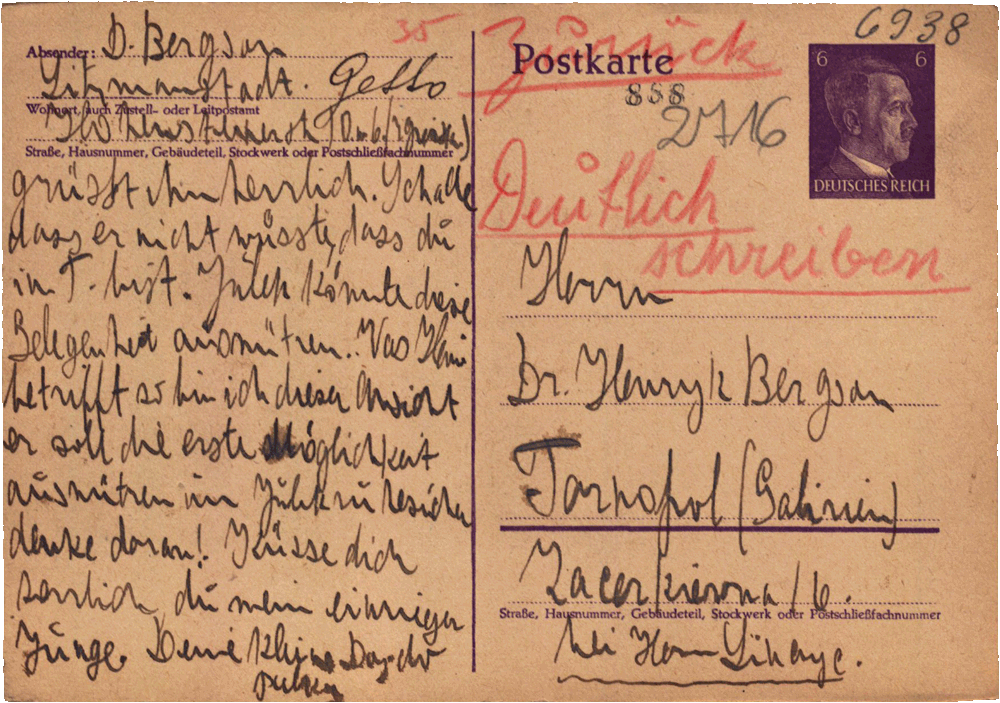 Absender: D. Bergson
Litzmannstadt. Getto
Wohnort, auch Zustell- oder Leitpostamt
Straße, Hausnummer, Gebäudeteil, Stockwerk oder Postschließfachnummer
grüsst ihn herrlich. Schade
dass er nicht wüsste, dass du
in T. bist. Julek könnte diese
Gelegenheit ausnützen.. Was
betrifft so bin ich dieser Ansicht
er soll die erste Möglichkeit
ausnützen um Julek zu
denke daran! Küsse dich
herzlich, du mein einziger
Junge. Deine
35
Zurück
6938
Postkarte
858
2716
6 6
DEUTSCHES REICH
Deutlich
schreiben
Herrn
Dr. Henryk Bergson
Tarnopol (Galizien)
Zacerkiewna 16.
Straße, Hausnummer, Gebäudeteil, Stockwerk oder Postschließfachnummer
bei Herrn